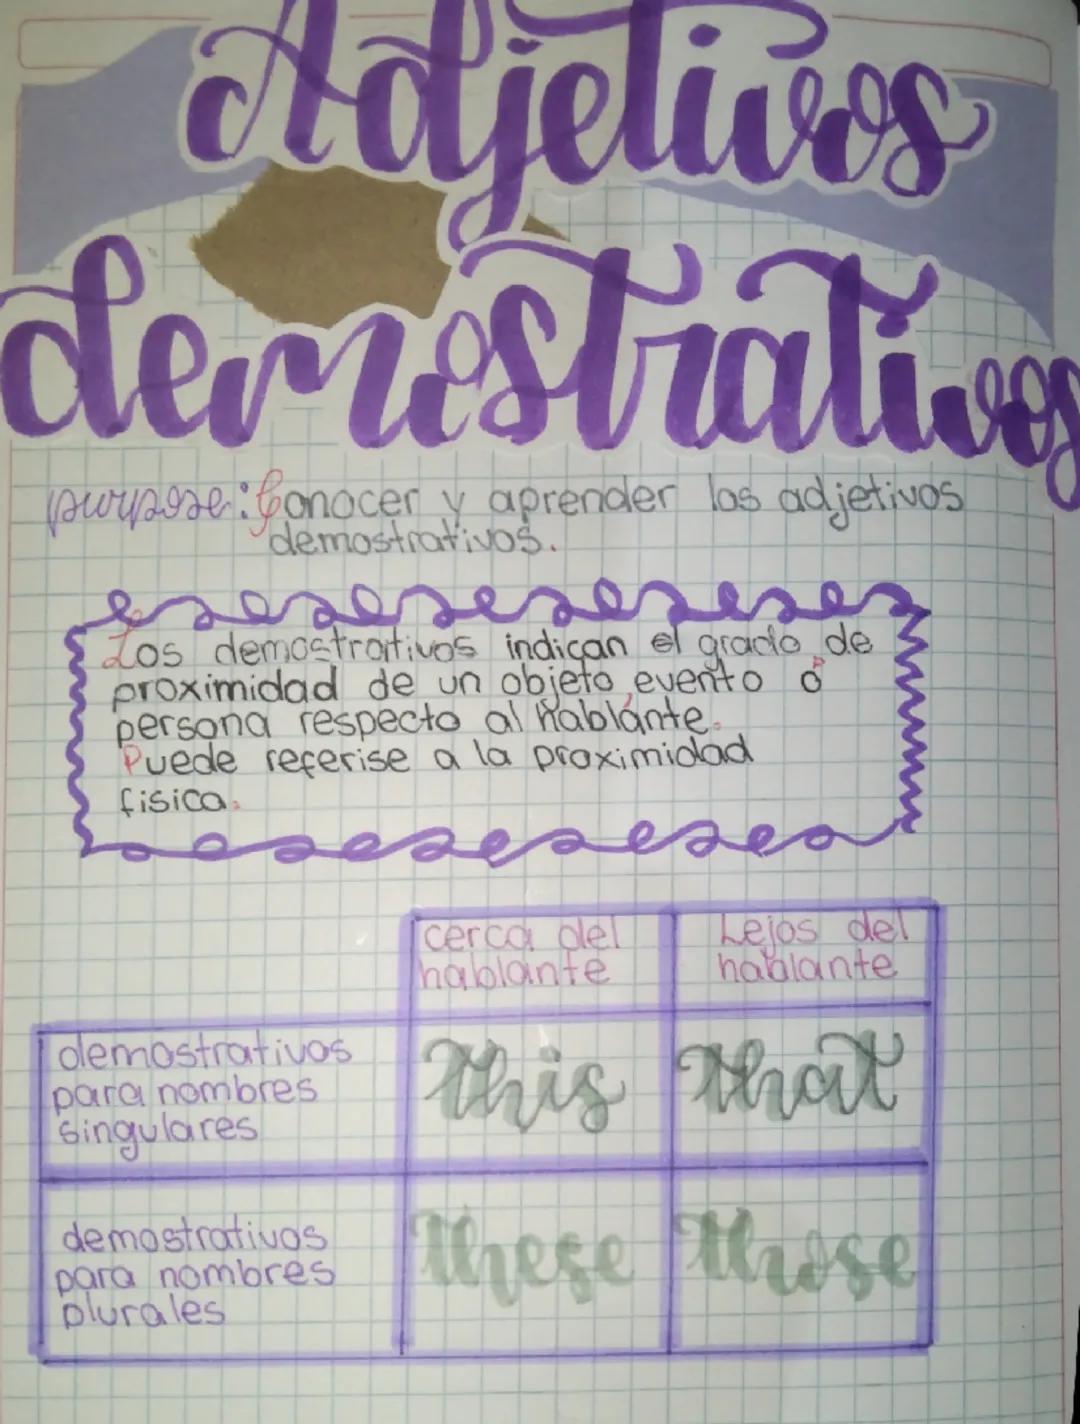 Adjetivos
demostrativos
purpose: Conocer y aprender los adjetivos
demostrativos.
Los demostrativos indican el grado de
proximidad de un objeto, evento o
persona respecto al hablante.
Puede referise a la proximidad
fisica.
cerca del
hablante
Lejos del
hablante
demostrativos
para nombres
singulares
this
that
demostrativos
para nombres
plurales
these
those